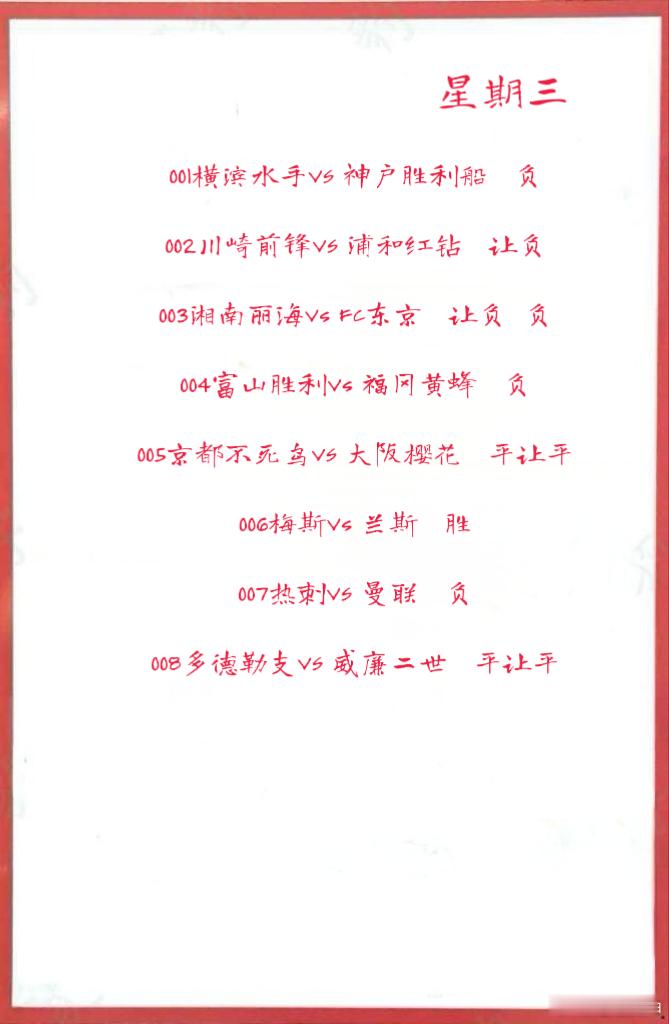 星期三
001横滨水手vs 神户胜利船 负
002川崎前锋vs 浦和红钻 让负
003湘南丽海vs FC东京 让负 负
004富山胜利vs 福冈黄蜂 负
005京都不死鸟vs 大阪樱花 平让平
006梅斯vs 兰斯 胜
007热刺vs 曼联 负
008多德勒支vs 威廉二世 平让平